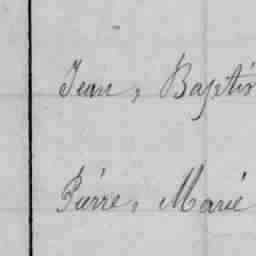 Jean, Baptis
Pierre, Marie